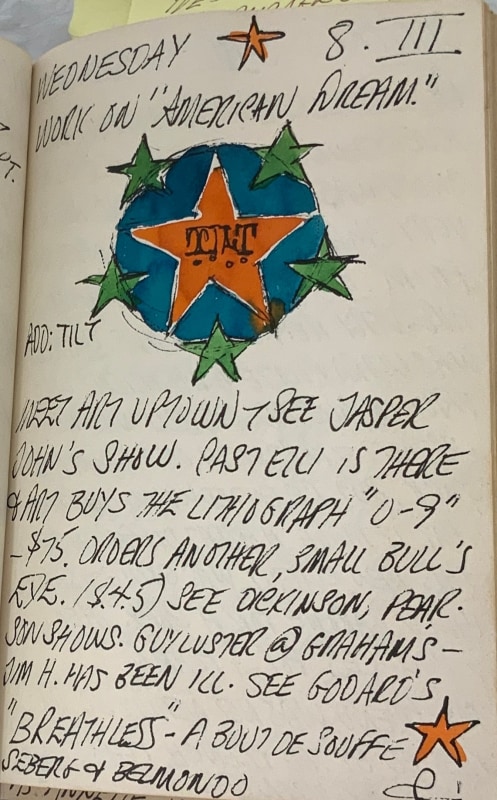 WEDNESDAY 8. III
WORK ON "AMERICAN DREAM."
TILT
ADD: TILT
MEET ART UPTOWN & SEE JASPER
JOHN'S SHOW. CASTELLI IS THERE
& ART BUYS THE LITHOGRAPH "0-9"
– $75. ORDERS ANOTHER, SMALL BULL'S
EYE. ($45) SEE DICKINSON, PEAR-
SON SHOWS. GUY LUSTER @ GRAHAM'S –
JIM H. HAS BEEN ILL. SEE GODARD'S
"BREATHLESS" – A BOUT DE SOUFFE
SEBERG & BELMONDO